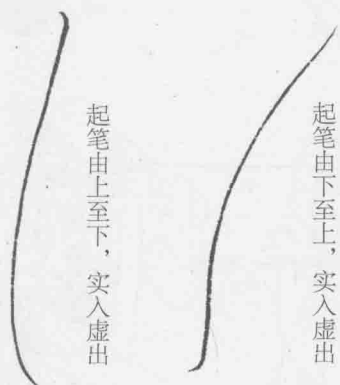 起笔由下至上，实入虚出
起笔由上至下，实入虚出